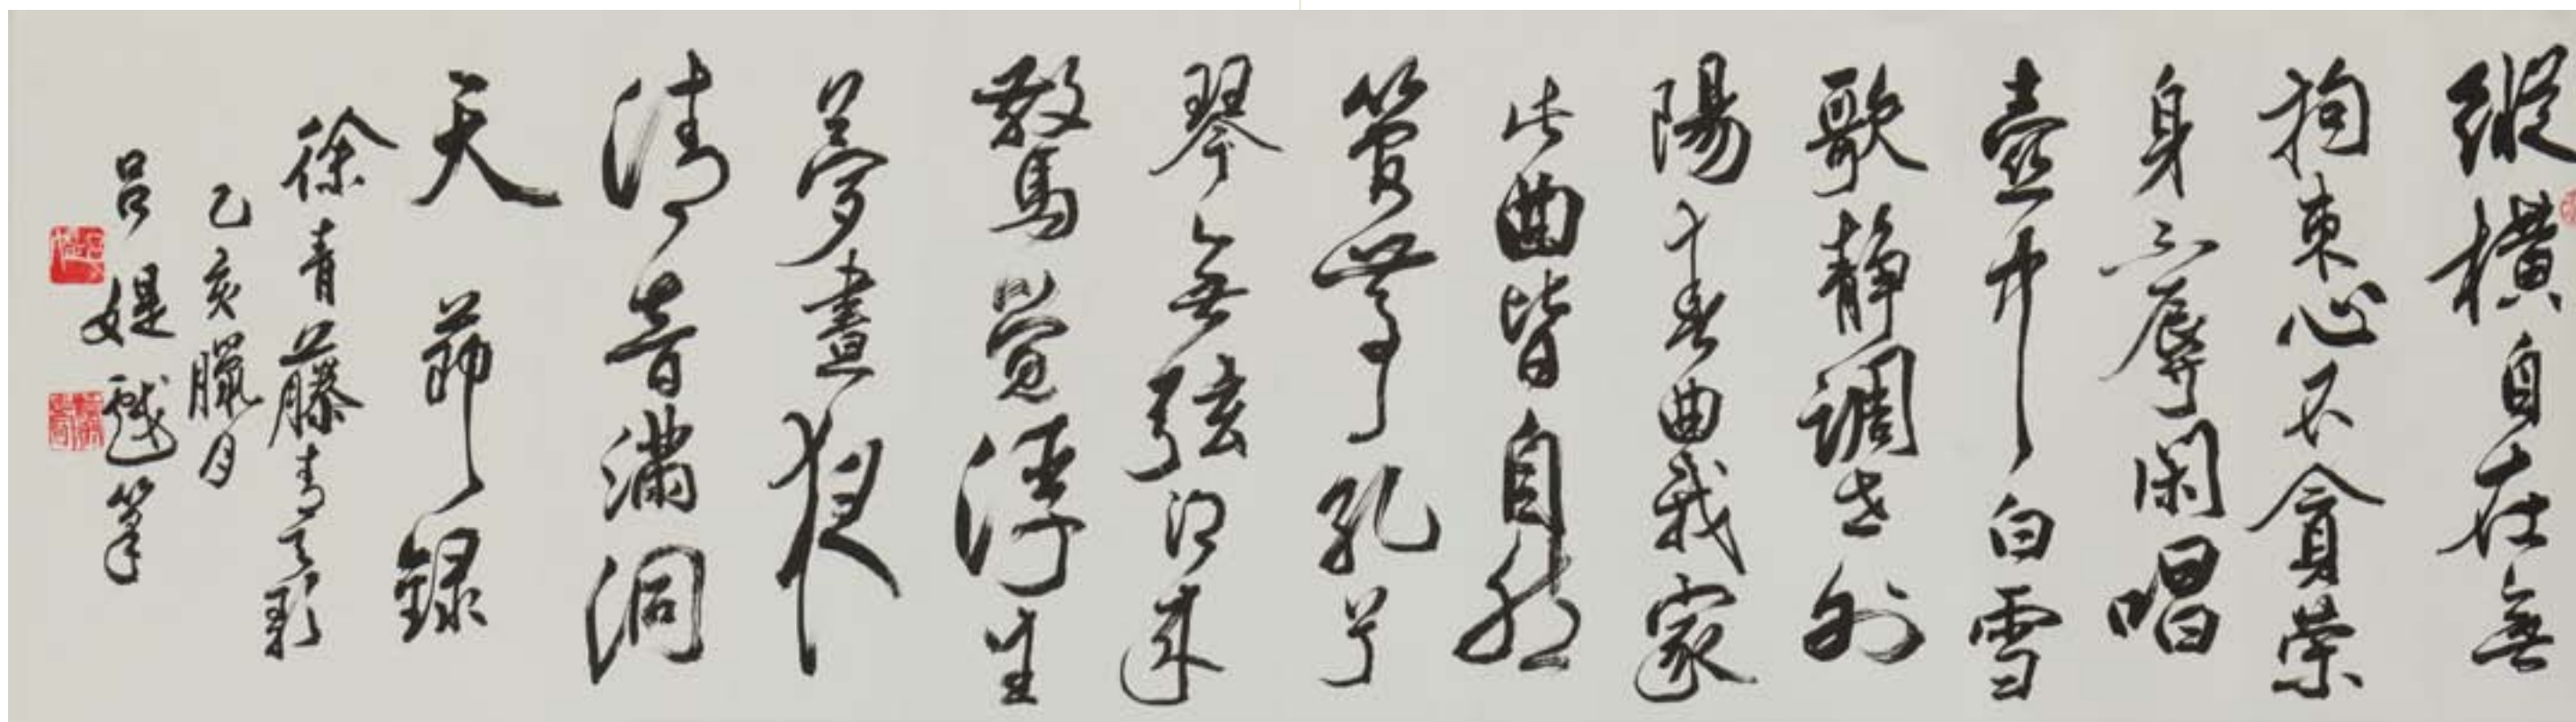 縱橫自在無
拘束心不貪榮
身不辱閑唱
壺中白雪
歌靜調世外
陽春曲我家
此曲皆自然
管無孔兮
琴無弦得來
驚覺浮生
夢晝夜
清音滿洞
天節錄
徐青藤青天歌
乙亥臘月
呂媞戲筆